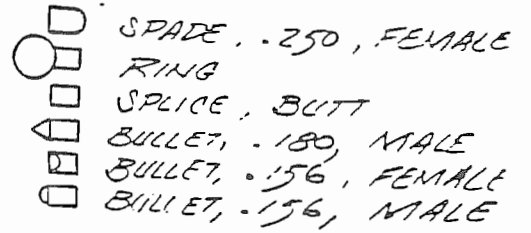 SPADE, .250, FEMALE
RING
SPLICE, BUTT
BULLET, .180, MALE
BULLET, .156, FEMALE
BULLET, .156, MALE